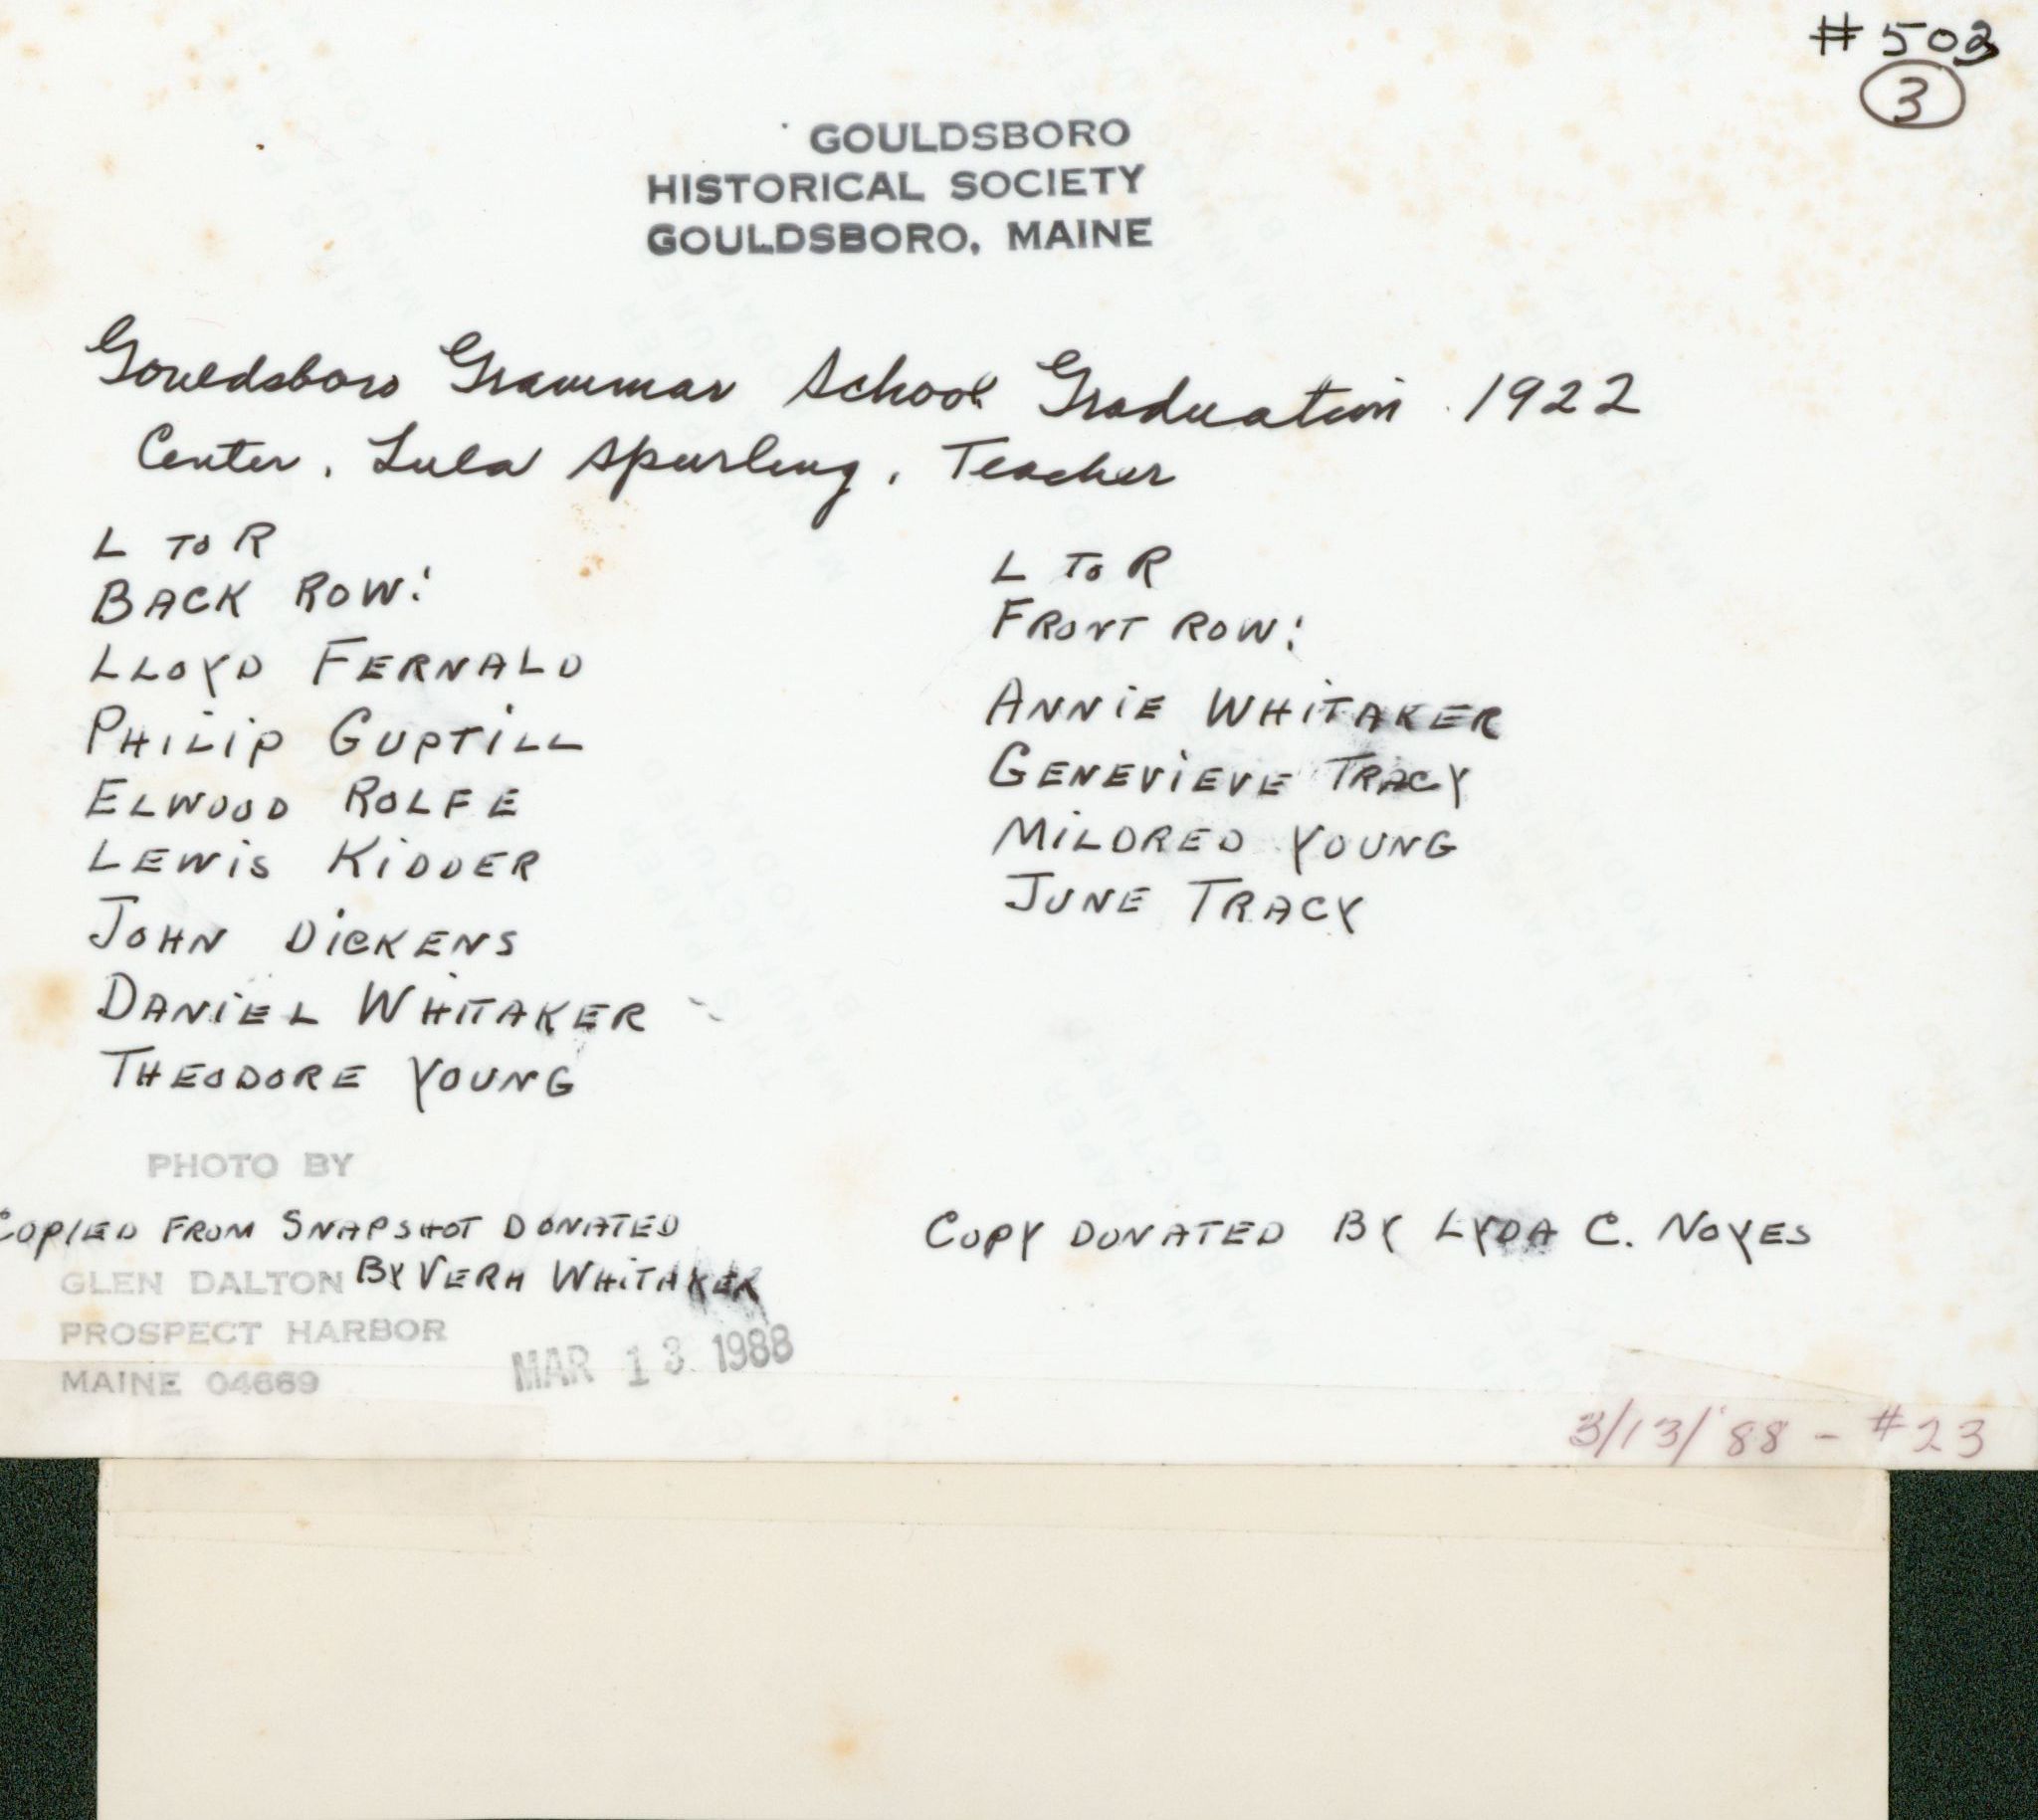 # 503
3
GOULDSBORO
HISTORICAL SOCIETY
GOULDSBORO, MAINE
Gouldsboro Grammar School Graduation 1922
Center, Lula Spurling, Teacher
L TO R
BACK ROW:
LLOYD FERNALD
PHILIP GUPTILL
ELWOOD ROLFE
LEWIS KIDDER
JOHN DICKENS
DANIEL WHITAKER
THEODORE YOUNG
L TO R
FRONT ROW:
ANNIE WHITAKER
GENEVIEVE TRACY
MILDRED YOUNG
JUNE TRACY
PHOTO BY
COPIED FROM SNAPSHOT DONATED
BY VERA WHITAKER
GLEN DALTON
PROSPECT HARBOR
MAINE 04669
MAR 13 1988
COPY DONATED BY LYDA C. NOYES
3/13/'88 - #23